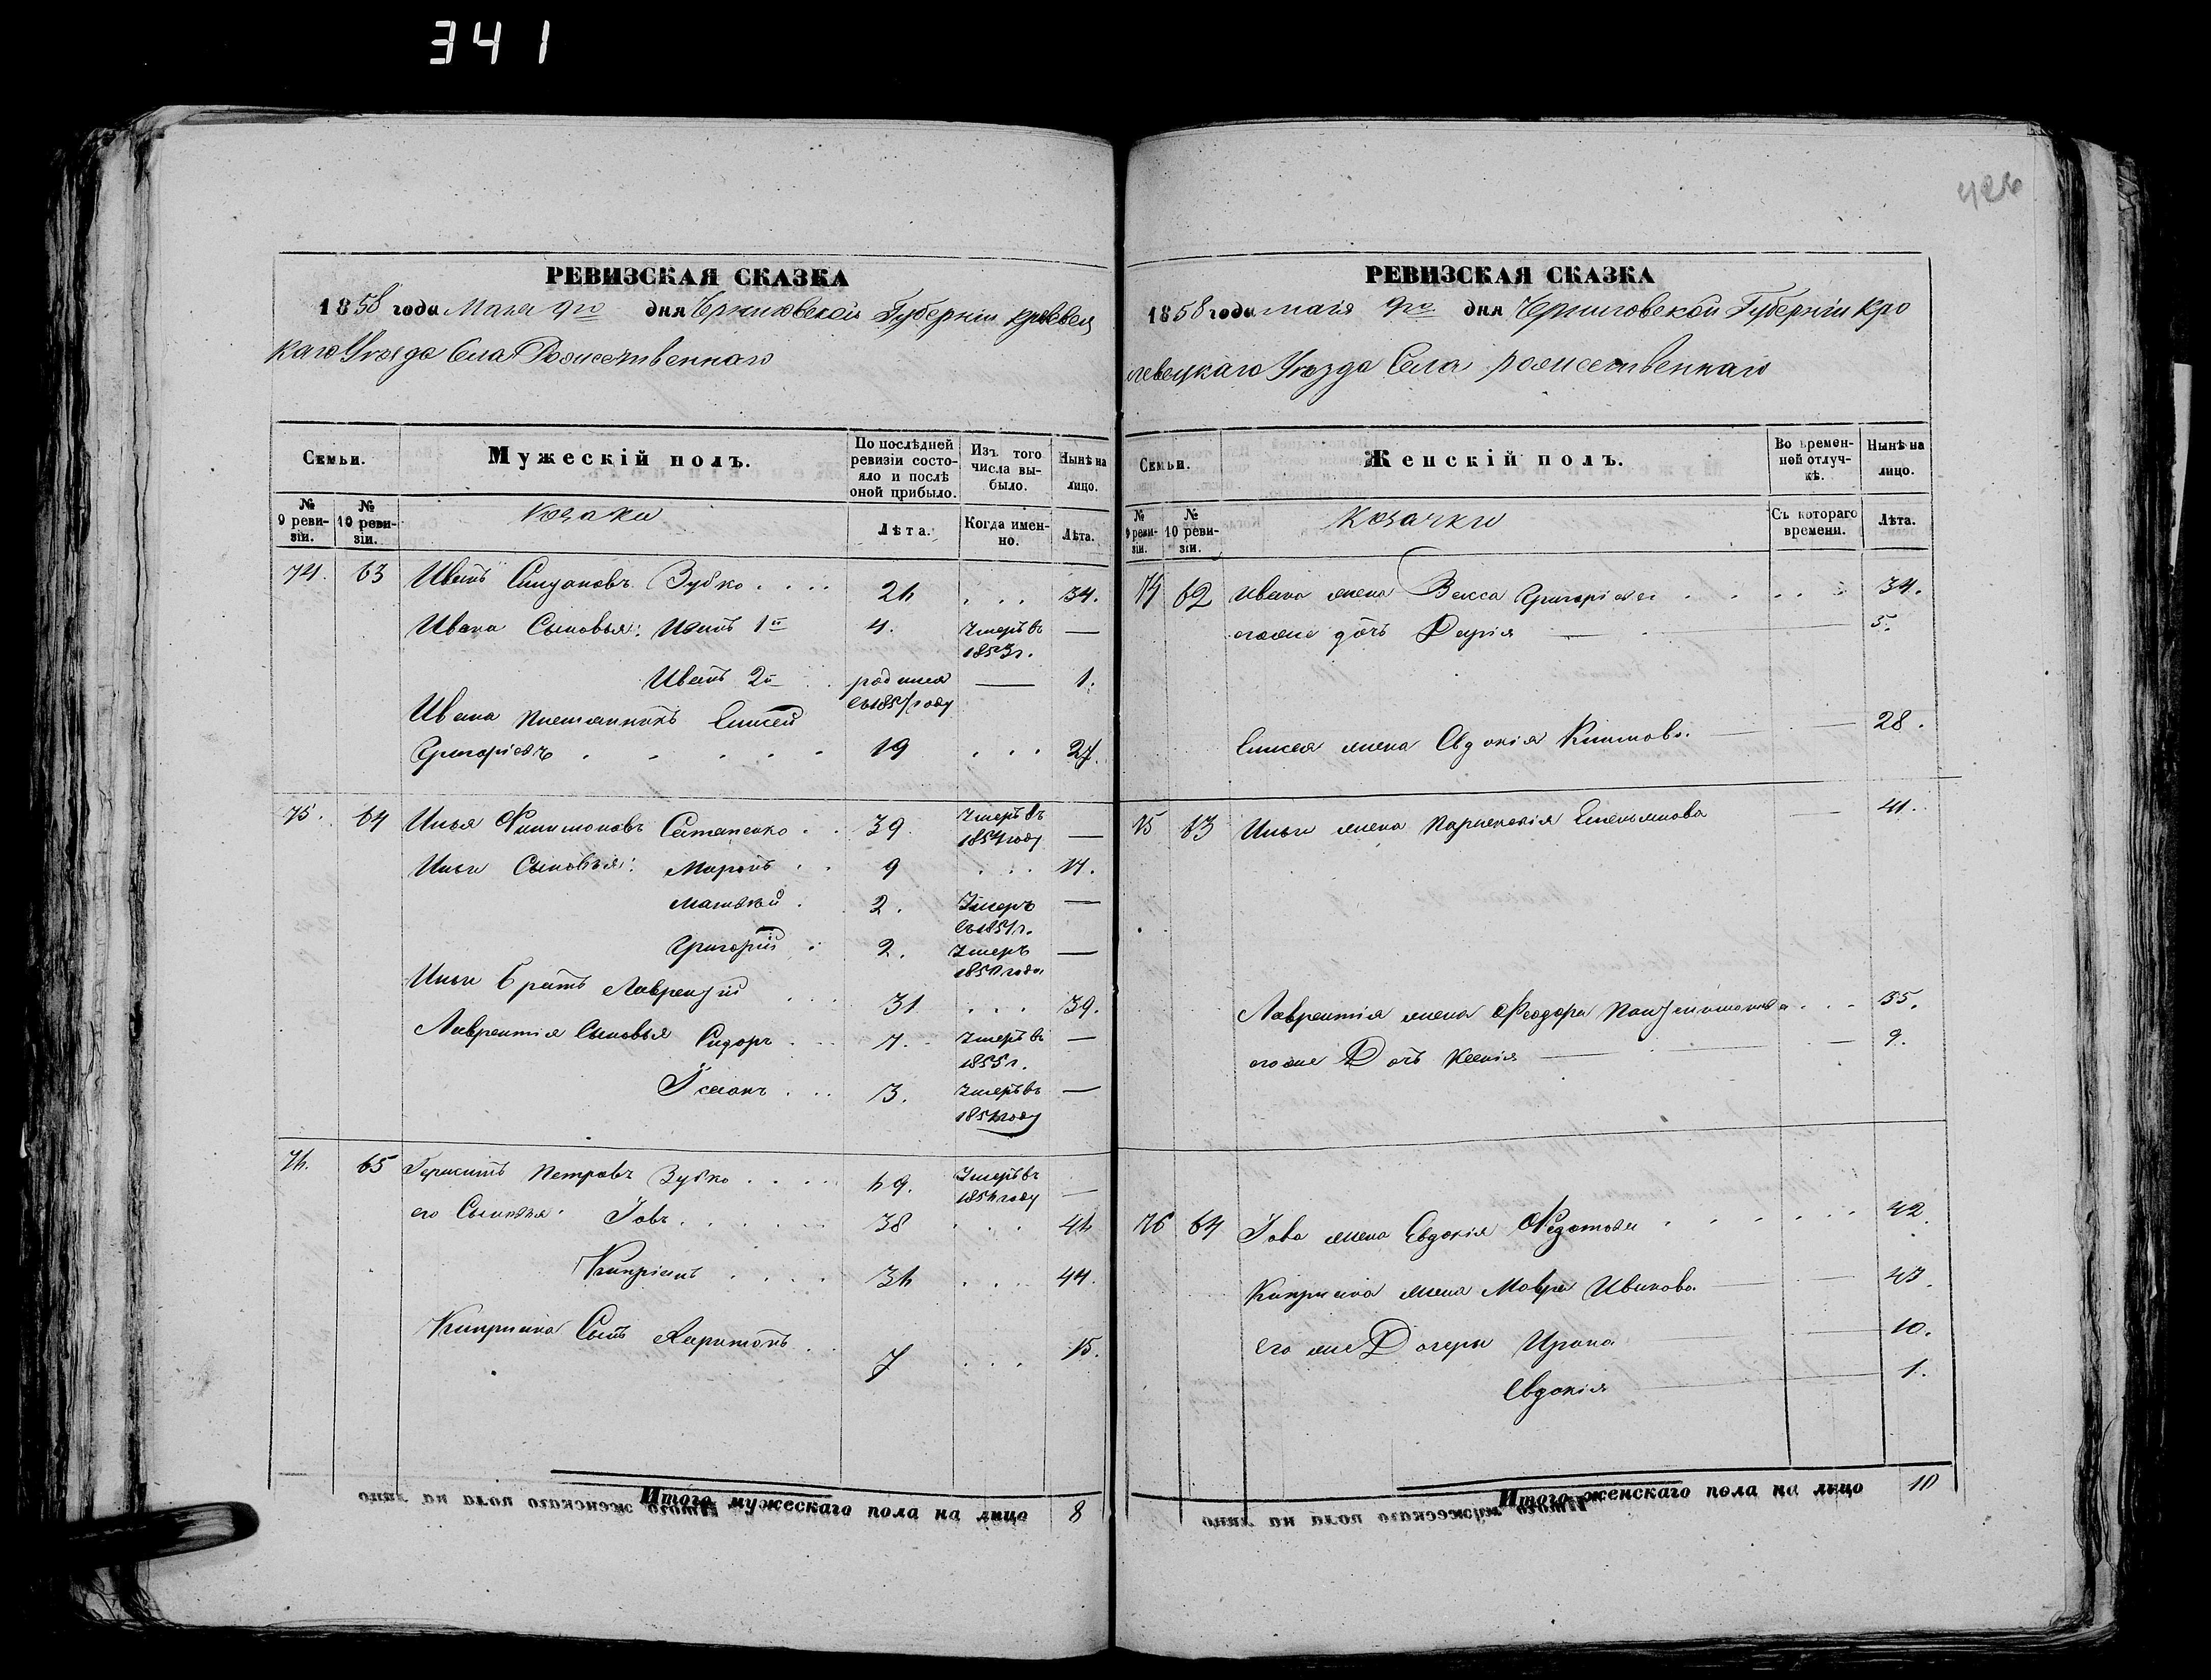 341
426
РЕВИЗСКАЯ СКАЗКА
1858 года Маия 9го дня Черниговской Губерніи Кролевец
каго Уѣзда Села Рожественнаго
Семьи.
Мужескій полъ.
По послѣдней ревизіи состояло и послѣ оной прибыло.
Изъ того числа выбыло.
Нынѣ на лицо.
№ 9 ревизіи.
№ 10 ревизіи.
Козаки
Лѣта.
Когда именно.
Лѣта.
74. 63 Иванъ Зубко . . . . 26 . . . 34.
Ивана Сыновья: Иванъ 1й 4. Умеръ въ 1853 г. —
Иванъ 2й родился въ 1857 году — 1.
Ивана племянникъ Елисей
Григорьевъ . . . . . 19 . . . 27.
75. 64 Илья Филимоновъ . . 39. Умеръ въ 1854 году —
Ильи Сыновья: Миронъ . . 9 . . . 17.
Матвѣй . 2. Умеръ въ 1851 г. —
Григорій . 2. Умеръ —
Ильи братъ Лаврентій . . . 31 . . . 39.
Лаврентія Сыновья Сидоръ . . . 7. Умеръ въ 1855 г. —
. . . 3. Умеръ въ —
76. 65 Герасимъ Петровъ Зубко . . . . 69. Умеръ въ 1856 году —
его Сыновья: Іовъ . . . . . 38 . . . 46
Кипріянъ . . . . 36 . . . 44.
Кипріяна Сынъ Харитонъ . . 7 . . . 15.
Итого мужескаго пола на лицо 8
РЕВИЗСКАЯ СКАЗКА
1858 года маія 9го дня Черниговской Губерніи Кро
левецкаго Уѣзда Села рожественнаго
Семьи.
Женскій полъ.
Во временной отлучкѣ.
Нынѣ на лицо.
№ 9 ревизіи.
№ 10 ревизіи.
Козачки
Съ котораго времени.
Лѣта.
74 62 Ивана жена Васса Григорьева . . . . 34.
егоже дочь Дарія — 5.
Елисея жена Евдокія Климова — 28.
75 63 Ильи жена Параскевія Емельянова — 41.
Лаврентія жена Феодора . . . 35.
егоже Дочь Ксенія — 9.
76 64 Іова жена Евдокія Федотова . . . . . . 42.
Кипріяна жена Мавра Иванова — 43.
его же Дочери Ирина — 10.
Евдокія — 1.
Итого женскаго пола на лицо 10